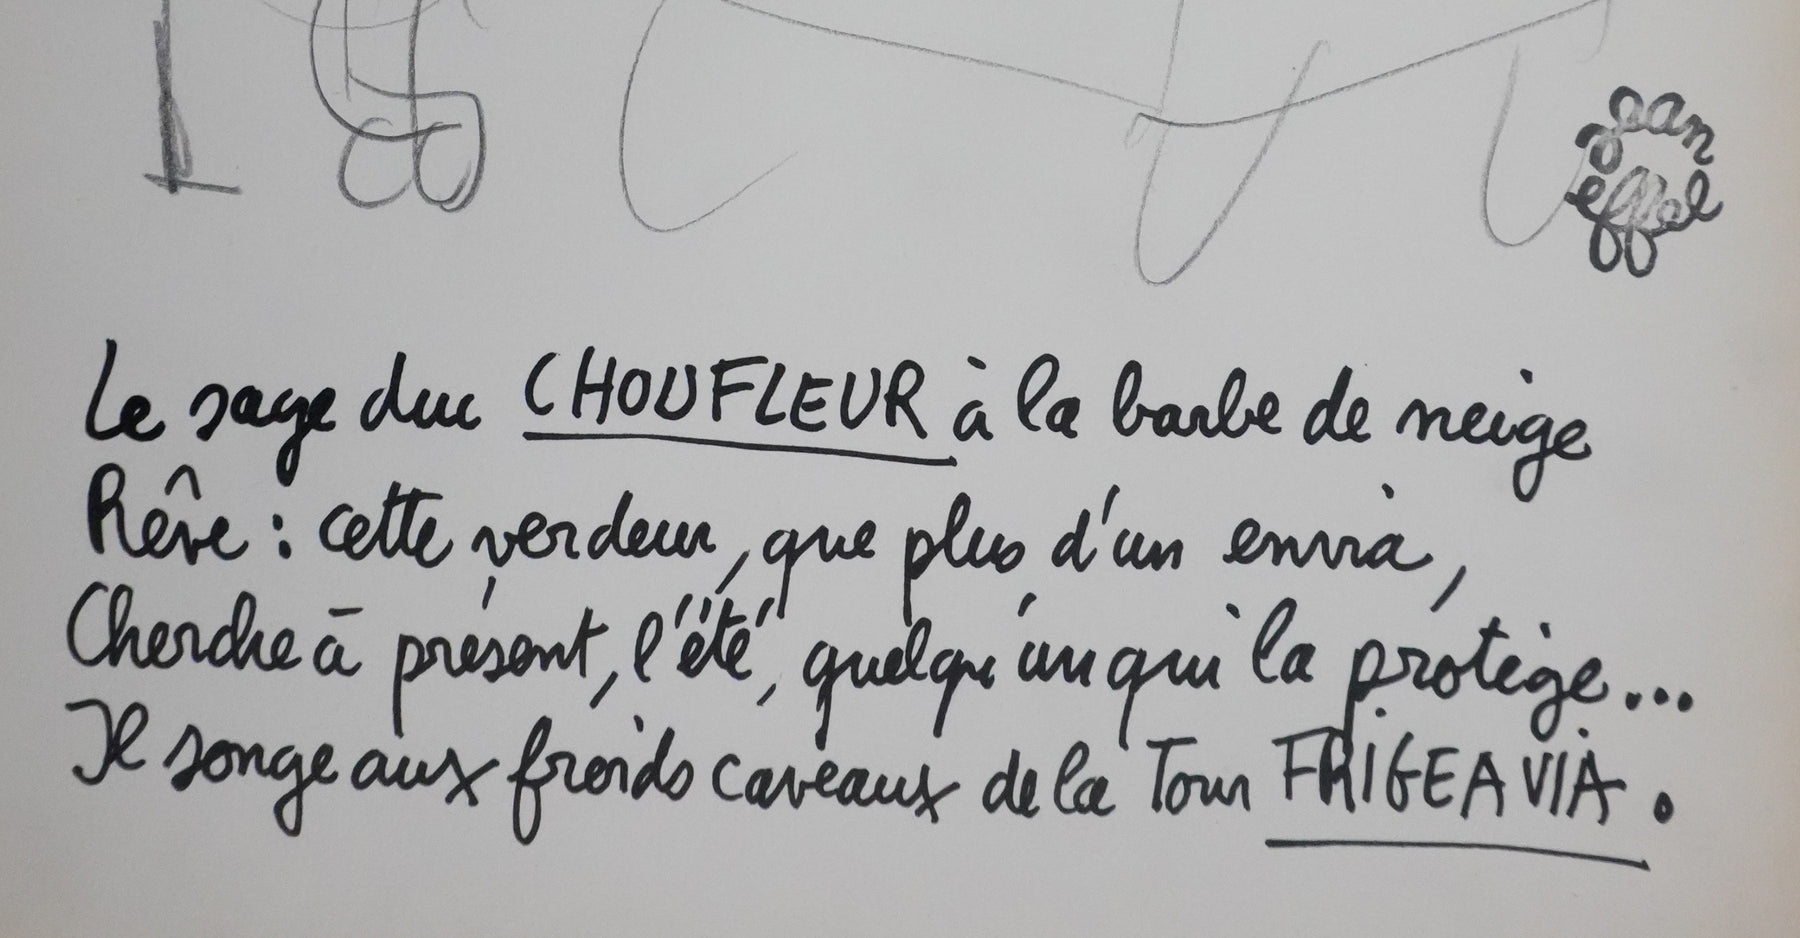 jean
effel
Le sage duc CHOUFLEUR à la barbe de neige
Rêve : cette verdeur, que plus d'un envia,
Cherche à présent, l'été, quelqu'un qui la protège...
Il songe aux froids caveaux de la Tour FRIGEAVIA.